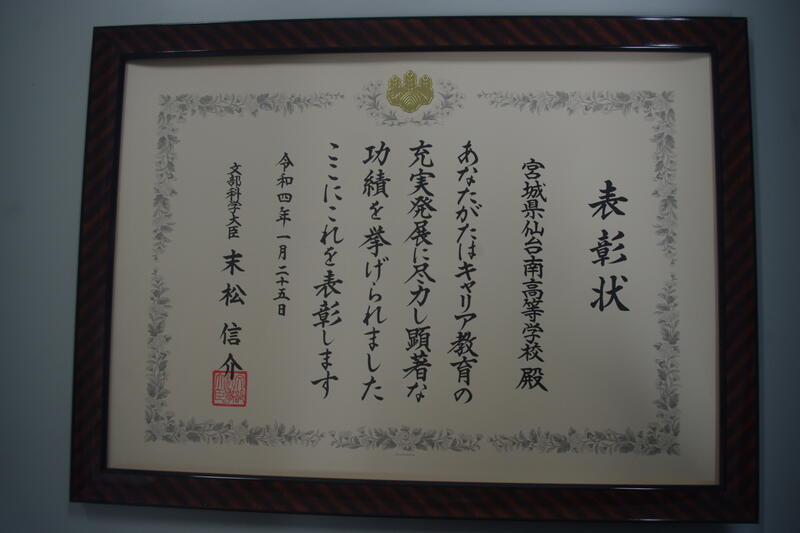 表彰状
宮城県仙台南高等学校 殿
あなたがたはキャリア教育の
充実発展に尽力し顕著な
功績を挙げられました
ここにこれを表彰します
令和四年一月二十五日
文部科学大臣 末松信介